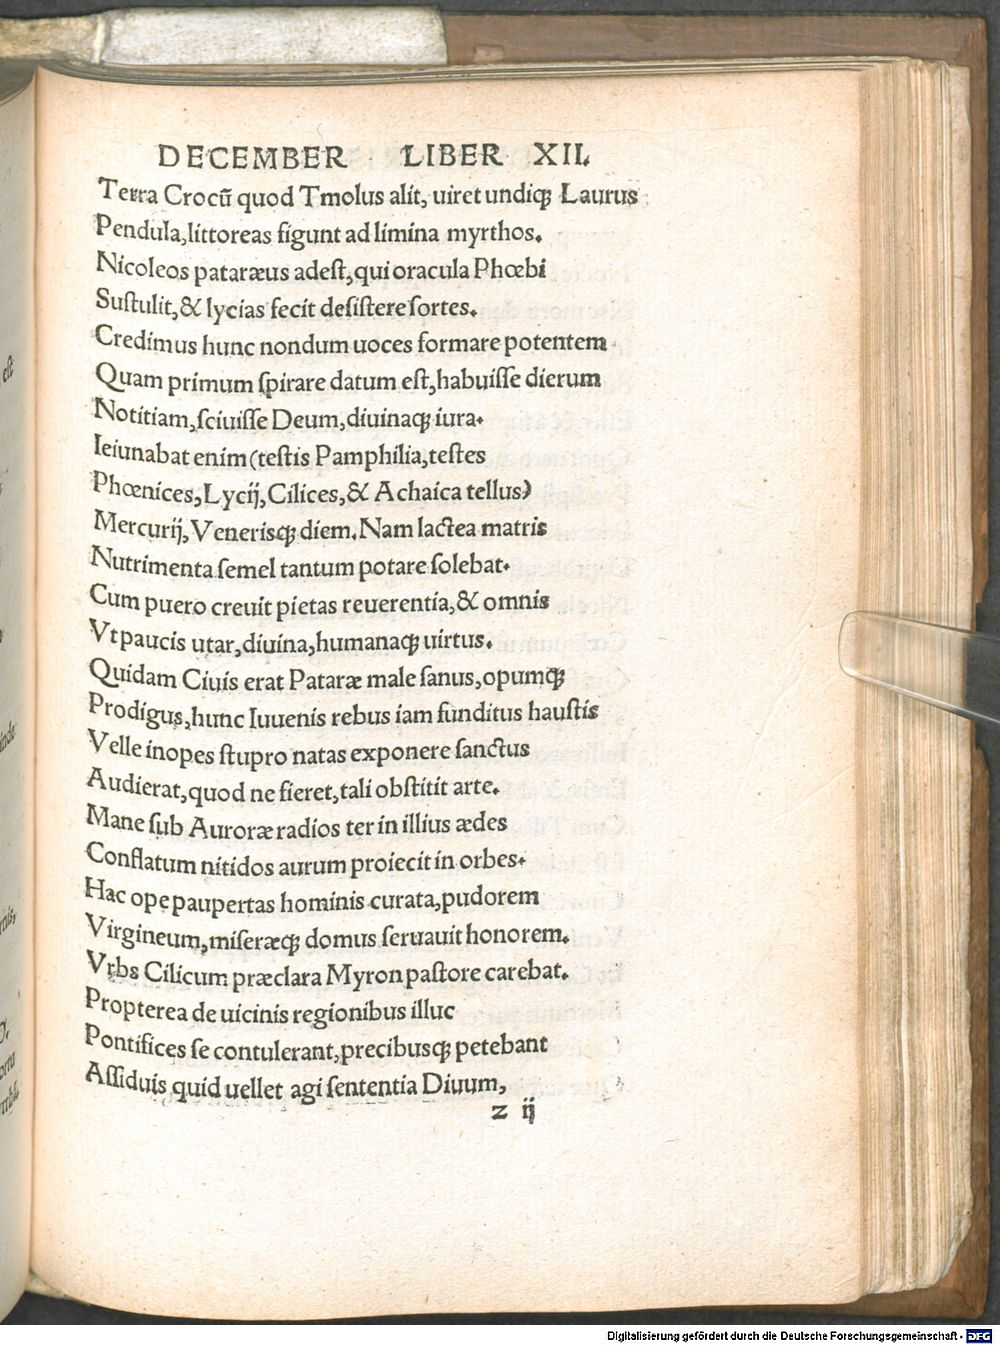 DECEMBER LIBER XII.
Terra Crocũ quod Tmolus alit, uiret undiqꝫ Laurus
Pendula, littoreas figunt ad limina myrthos.
Nicoleos pataræus adest, qui oracula Phœbi
Sustulit, & lycias fecit desistere sortes.
Credimus hunc nondum uoces formare potentem
Quam primum spirare datum est, habuisse dierum
Notitiam, sciuisse Deum, diuinaqꝫ iura.
Ieiunabat enim (testis Pamphilia, testes
Phœnices, Lycij, Cilices, & Achaica tellus)
Mercurij, Venerisqꝫ diem. Nam lactea matris
Nutrimenta semel tantum potare solebat.
Cum puero creuit pietas reuerentia, & omnis
Vt paucis utar, diuina, humanaqꝫ uirtus.
Quidam Ciuis erat Pataræ male sanus, opumqꝫ
Prodigus, hunc Iuuenis rebus iam funditus haustis
Velle inopes stupro natas exponere sanctus
Audierat, quod ne fieret, tali obstitit arte.
Mane sub Auroræ radios ter in illius ædes
Conflatum nitidos aurum proiecit in orbes.
Hac ope paupertas hominis curata, pudorem
Virgineum, miseræqꝫ domus seruauit honorem.
Vrbs Cilicum præclara Myron pastore carebat.
Propterea de uicinis regionibus illuc
Pontifices se contulerant, precibusqꝫ petebant
Assiduis quid uellet agi sententia Diuum,
z ij
Digitalisierung gefördert durch die Deutsche Forschungsgemeinschaft - DFG